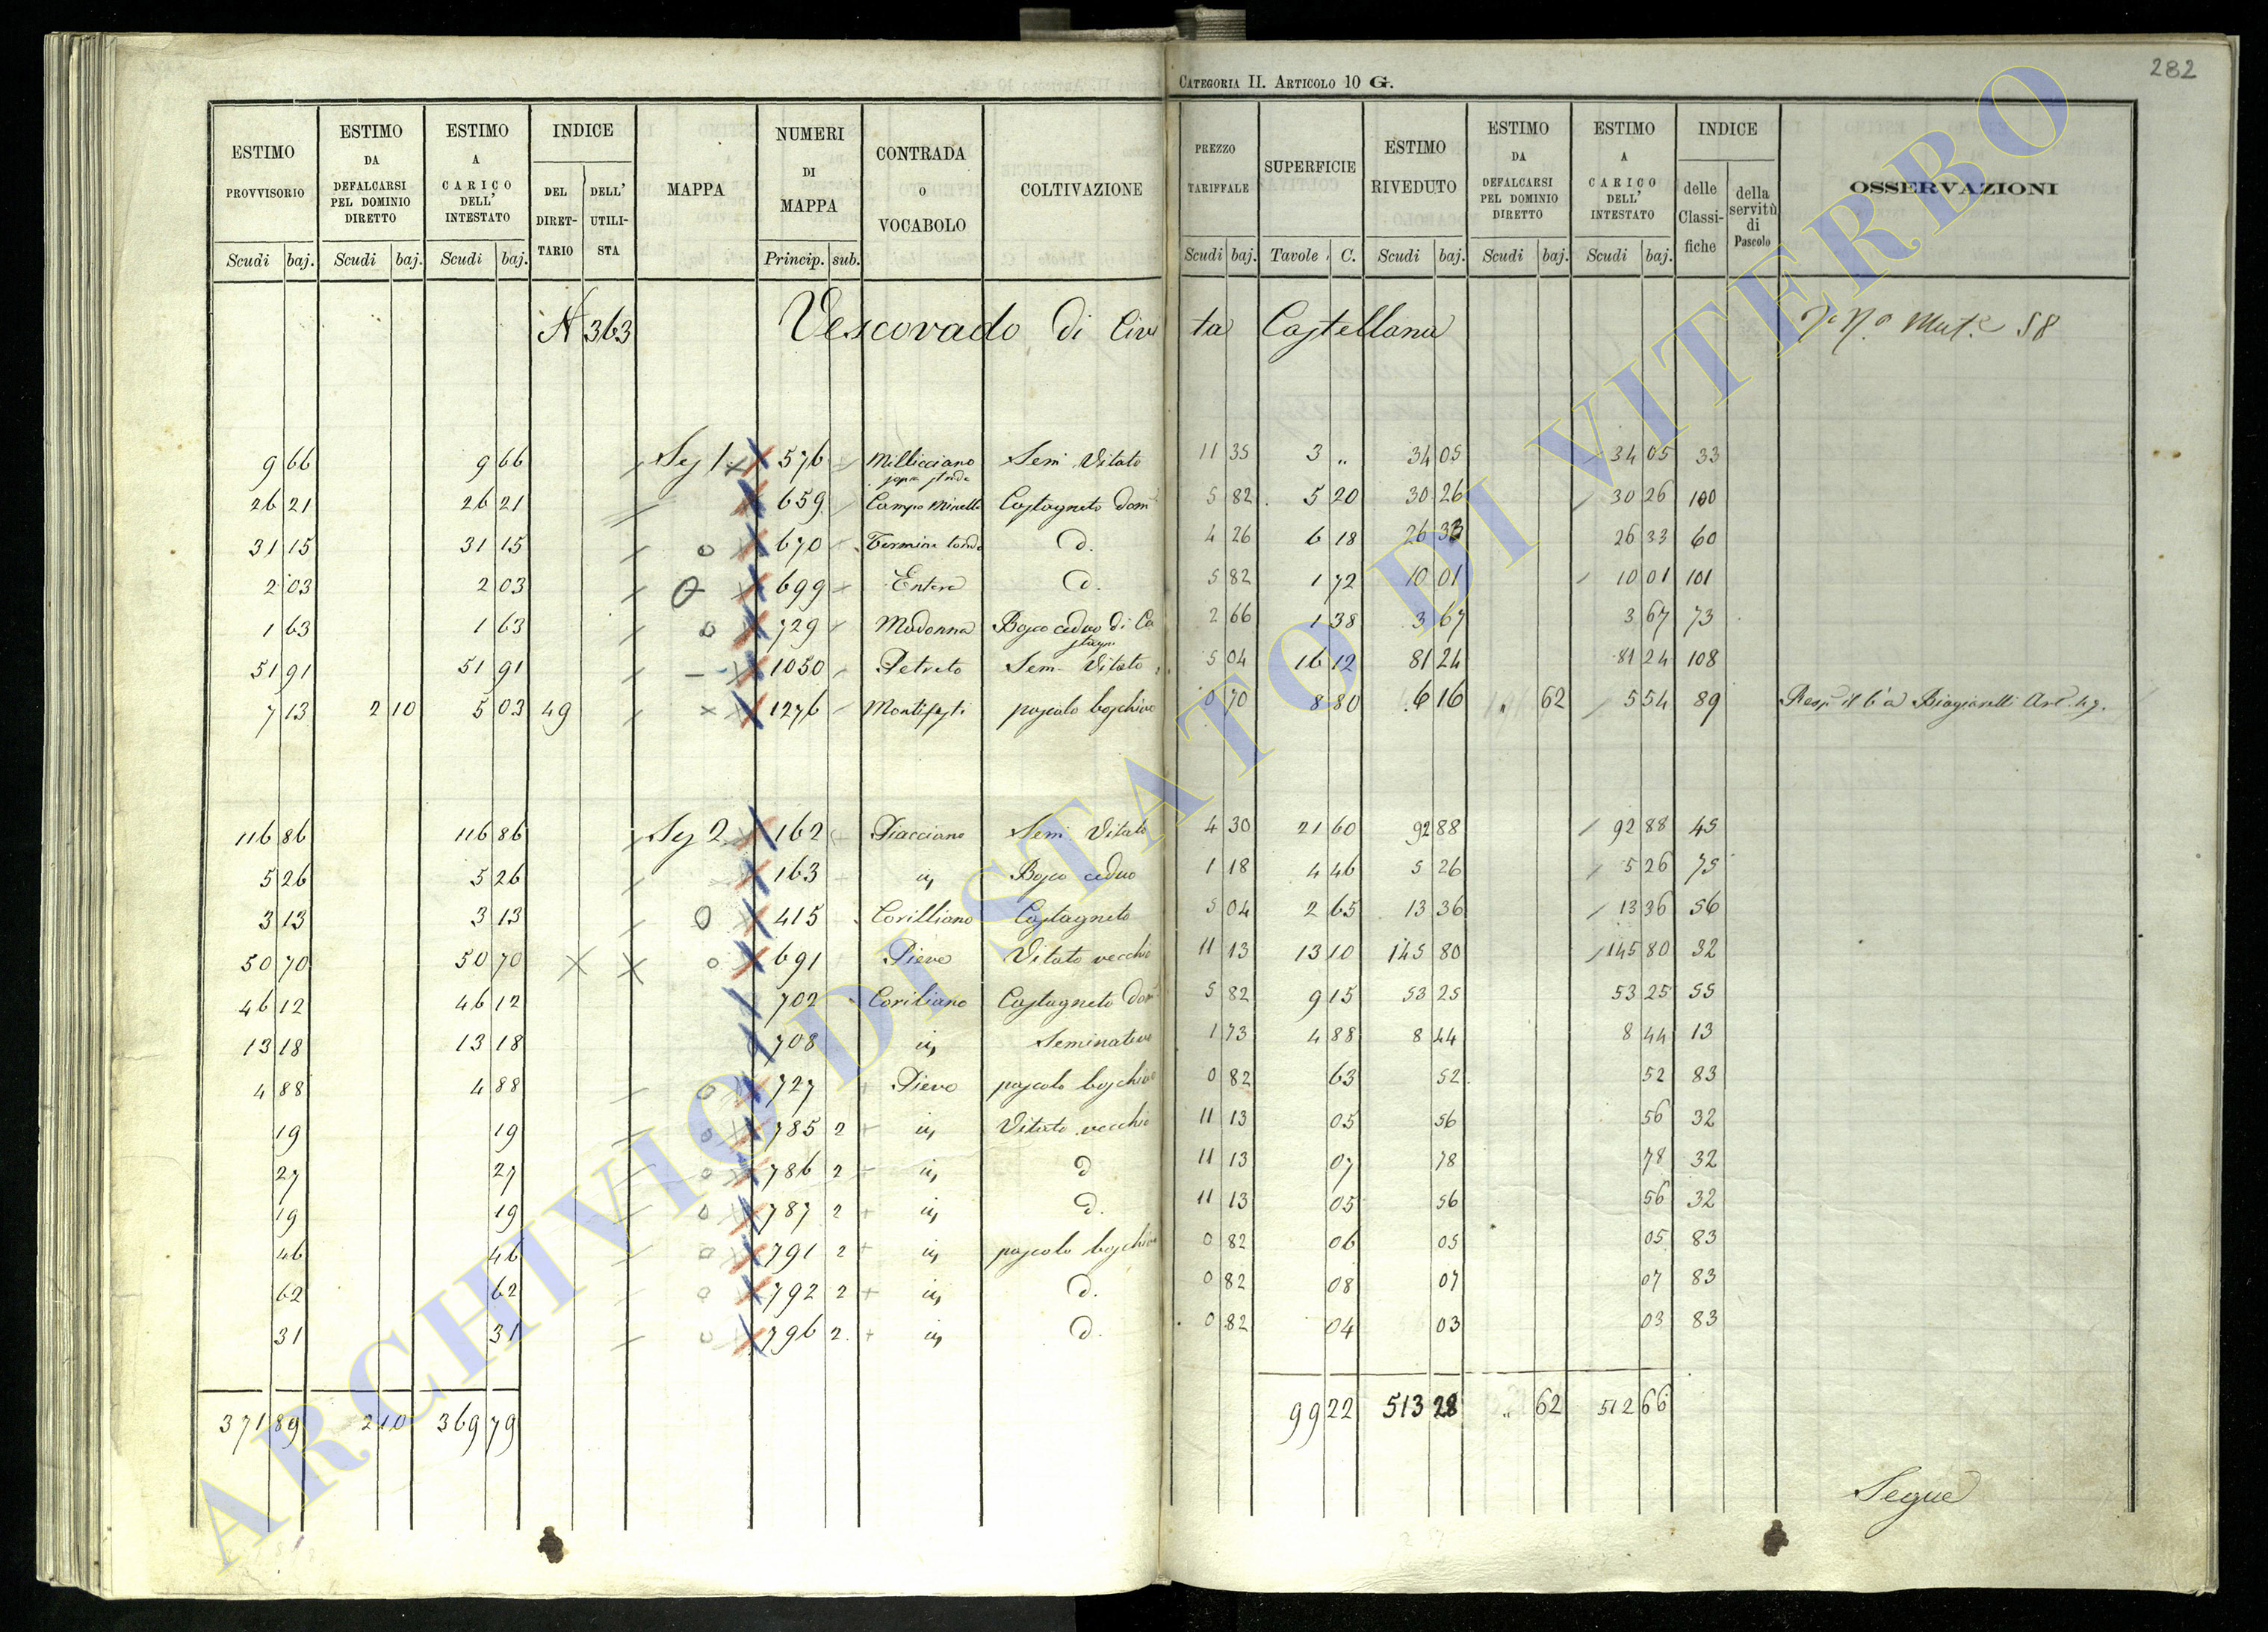 CATEGORIA II. ARTICOLO 10 G.
282
ESTIMO PROVVISORIO Scudi baj.
ESTIMO DA DEFALCARSI PEL DOMINIO DIRETTO Scudi baj.
ESTIMO A CARICO DELL' INTESTATO Scudi baj.
INDICE DEL DIRETTARIO DELL' UTILISTA
MAPPA
NUMERI DI MAPPA Princip. sub.
CONTRADA O VOCABOLO
COLTIVAZIONE
PREZZO TARIFFALE Scudi baj.
SUPERFICIE Tavole C.
ESTIMO RIVEDUTO Scudi baj.
ESTIMO DA DEFALCARSI PEL DOMINIO DIRETTO Scudi baj.
ESTIMO A CARICO DELL' INTESTATO Scudi baj.
INDICE delle Classifiche della servitù di Pascolo
OSSERVAZIONI
N 363 Vescovado di Civita Castellana Mut. 58
9 66 9 66 Sez 1 576 Millicciano sopra strada Sem Vitato 11 35 3 „ 34 05 34 05 33
26 21 26 21 659 Campo Minello Castagneto dom 5 82 5 20 30 26 30 26 100
31 15 31 15 670 Termine tondo d. 4 26 6 18 26 33 26 33 60
2 03 2 03 699 Entera d. 5 82 1 72 10 01 10 01 101
1 63 1 63 729 Madonna Bosco ceduo di Castagni 2 66 1 38 3 67 3 67 73
51 91 51 91 1050 Petreto Sem Vitato 5 04 16 12 81 24 81 24 108
7 13 2 10 5 03 49 1276 pascolo boschivo 0 70 8 80 6 16 „ 62 5 54 89 Biagiarelli Art. 49.
116 86 116 86 Sez 2 162 Piacciano Sem Vitato 4 30 21 60 92 88 92 88 45
5 26 5 26 163 in Bosco ceduo 1 18 4 46 5 26 5 26 75
3 13 3 13 415 Corilliano Castagneto 5 04 2 65 13 36 13 36 56
50 70 50 70 691 Pieve Vitato vecchio 11 13 13 10 145 80 145 80 32
46 12 46 12 702 Coriliano Castagneto dom 5 82 9 15 53 25 53 25 55
13 18 13 18 708 in Seminativo 1 73 4 88 8 44 8 44 13
4 88 4 88 727 Pieve pascolo boschivo 0 82 63 52 52 83
19 19 785 2 in Vitato vecchio 11 13 05 56 56 32
27 27 786 2 in d 11 13 07 78 78 32
19 19 787 2 in d. 11 13 05 56 56 32
46 46 791 2 in pascolo boschivo 0 82 06 05 05 83
62 62 792 2 in d. 0 82 08 07 07 83
31 31 796 2 in d. 0 82 04 03 03 83
371 89 2 10 369 79 99 22 513 28 „ 62 512 66
Segue
ARCHIVIO DI STATO DI VITERBO